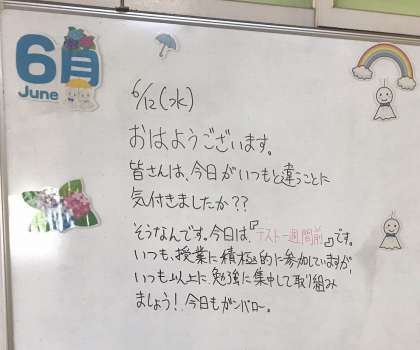 6月
June
6/12(水)
おはようございます。
皆さんは、今日がいつもと違うことに
気付きましたか??
そうなんです。今日は、『テスト一週間前』です。
いつも、授業に積極的に参加していますが、
いつも以上に勉強に集中して取り組み
ましょう!今日もガンバロー。